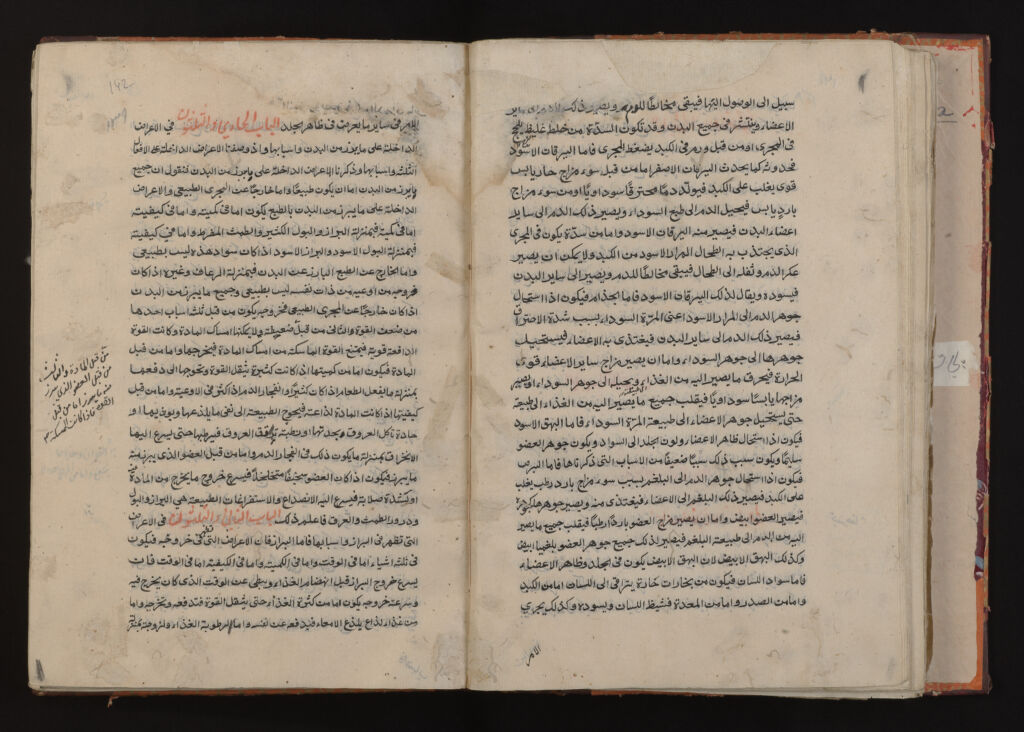 سبيل الى الوصول اليها فيبقى مخالطًا للدم ويصير ذلك الدم الى ساير
الاعضاء وينتشر فى جميع البدن وقد تكون السدة من خلط غليظ يلحج
فى المجرى او من قبل ورم فى الكبد يضغط المجرى فاما اليرقان الاسود
فحدوثه كما يحدث اليرقان الاصفر اما من قبل سوء مزاج حار يابس
قوى يغلب على الكبد فيولد دمًا محترقًا سوداويًا او من سوء مزاج
بارد يابس فيحيل الدم الى طبع السوداء ويصير ذلك الدم الى ساير
اعضاء البدن فيصير منه اليرقان الاسود واما من سدة يكون فى المجرى
الذى يجتذب به الطحال المرار الاسود من الكبد ولا يمكن ان يصير
عكر الدم وثفله الى الطحال فيبقى مخالطًا للدم ويصير الى ساير البدن
فيسوده ويقال لذلك اليرقان الاسود فاما الجذام فيكون اذا استحال
جوهر الدم الى المرار الاسود اعنى المرة السوداء بسبب شدة الاحتراق
فيصير ذلك الدم الى ساير البدن فيغتذى به الاعضاء فيستحيل
جوهرها الى جوهر السوداء واما ان يصير مزاج ساير الاعضاء قوى
الحرارة فيحرق ما يصير اليه من الغذاء ويحيله الى جوهر السوداء او يصير
مزاجها يابسًا سوداويًا فيقلب جميع ما يصير اليه من الغذاء الى طبيعته
حتى يستحيل جوهر الاعضاء الى طبيعة المرة السوداء فاما البهق الاسود
فيكون اذا استحال ظاهر الاعضاء ولون الجلد الى السواد ويكون جوهر العضو
سليمًا ويكون سبب ذلك سببًا ضعيفًا من الاسباب التى ذكرناها فاما البرص
فيكون اذا استحال جوهر الدم الى البلغم بسبب سوء مزاج بارد رطب يغلب
على الكبد فيصير ذلك البلغم الى الاعضاء فيغتذى منه ويصير جوهر
فيصير العضو ابيض واما ان يصير مزاج العضو باردًا رطبًا فيقلب جميع ما يصير
اليه من الدم الى طبيعة البلغم فيصير لذلك جميع جوهر العضو بلغميا ابيض
وكذلك البهق الابيض لان البهق الابيض يكون فى الجلد وظاهر الاعضاء
فاما سواد اللسان فيكون من بخارات حارة يتراقى الى اللسان اما من الكبد
واما من الصدر واما من المعدة فيشيط اللسان ويسوده وكذلك يجرى
الامر
142
الامر فى ساير ما يعرض فى ظاهر الجلد الباب الحادى والثلثون فى الاعراض
الداخلة على ما يبرز من البدن واسبابها واذ وصفنا الاعراض الداخلة على الافعال
واسبابها وذكرنا الاعراض الداخلة على ما يبرز من البدن فنقول ان جميع
ما يبرز من البدن اما ان يكون طبيعيًا واما خارجًا عن المجرى الطبيعى والاعراض
الداخلة على ما يبرز من البدن بالطبع يكون اما فى كميته واما فى كيفيته
اما فى كميته فبمنزلة البراز والبول الكثير والطمث المفرط واما فى كيفيته
فبمنزلة البول الاسود والبراز الاسود اذا كان سواد هذه ليس بطبيعى
واما الخارج عن الطبع البارز عن البدن فبمنزلة الرعاف وغيره اذا كان
خروجه من اوعيه من ذات نفسه ليس بطبيعى وجميع ما يبرز من البدن
اذا كان خارجًا عن المجرى الطبيعى فخروجه يكون من قبل ثلثة اسباب احدها
من ضعف القوة والثانى من قبل ضعيفة ولا يمكنها امساك المادة وكانت القوة
الدافعة قوية فيمنع القوة الماسكة من امساك المادة فيخرجها واما من قبل
المادة فيكون اما من كميتها اذا كانت كثيرة يثقل القوة وتحوجها الى دفعها
بمنزلة ما يفعل الطعام اذا كان كثيرًا وانفجار الدم اذا كثر فى الاوعية واما من قبل
كيفيتها اذا كانت المادة لذاعة فيحوج الطبيعة الى نفى ما يلذعها ويوذيها او
حادة تاكل العروق وبحدتها او رطبة توافق العروق فيرطبها حتى يسرع اليها
الانخراق بمنزلة ما يكون ذلك فى انفجار الدم واما من قبل العضو الذى يبرز منه
ما يبرز فيكون اذا كان العضو سخيفًا متخلخلًا فيسرع خروج ما يخرج من المادة منه
او لشدة صلابته فيسرع اليه الانصداع والاستفراغات الطبيعية هى البراز والبول
ودرور الطمث والعرق فاعلم ذلك الباب الثانى والثلثون فى الاعراض
التى تظهر فى البراز واسبابها فاما البراز فان الاعراض التى فى خروجه فيكون
فى ثلثة اشياء اما فى الوقت واما فى الكمية واما فى الكيفية اما فى الوقت فان
يسرع خروج البراز قبل انهضام الغذاء ويبطى عن الوقت الذى كان يخرج فيه
وسرعة خروجه يكون اما من كثرة الغذاء حتى يثقل القوة فتدفعه وتخرجه واما
من غذاء لذاع يلذع الامعاء فيدفعه عن نفسه واما لرطوبة الغذاء ولزوجته
من قبل المادة والثالث
من قبل العضو الذى يبرز
منه ما يبرز اما من قبل
القوة فاذا كانت الماسكة